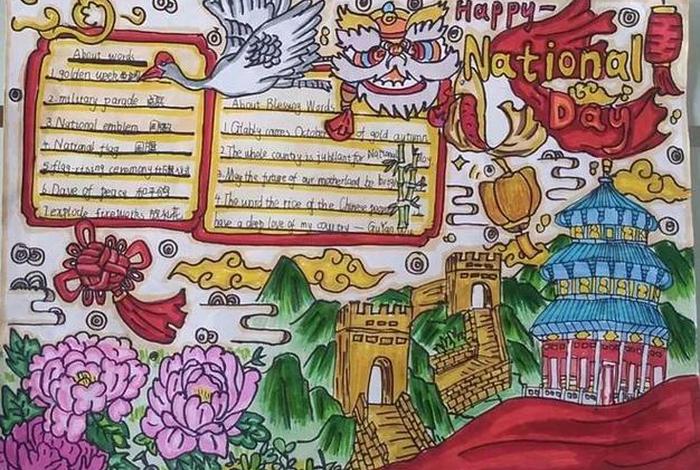 Happy-
National
Day
About words
1. golden week
2. military parade
3. National emblem 国徽
4. National flag 国旗
5. flag-rising ceremony 升旗
6. Dove of peace 和平鸽
7. explode fireworks
About Blessing Words
1. Glably comes October of gold autumn
2. The whole country is jubilant for National Day
3. May the future of our motherland be bright
4. The wind the rice of the Chinese
have a deep love of my country — GuYan